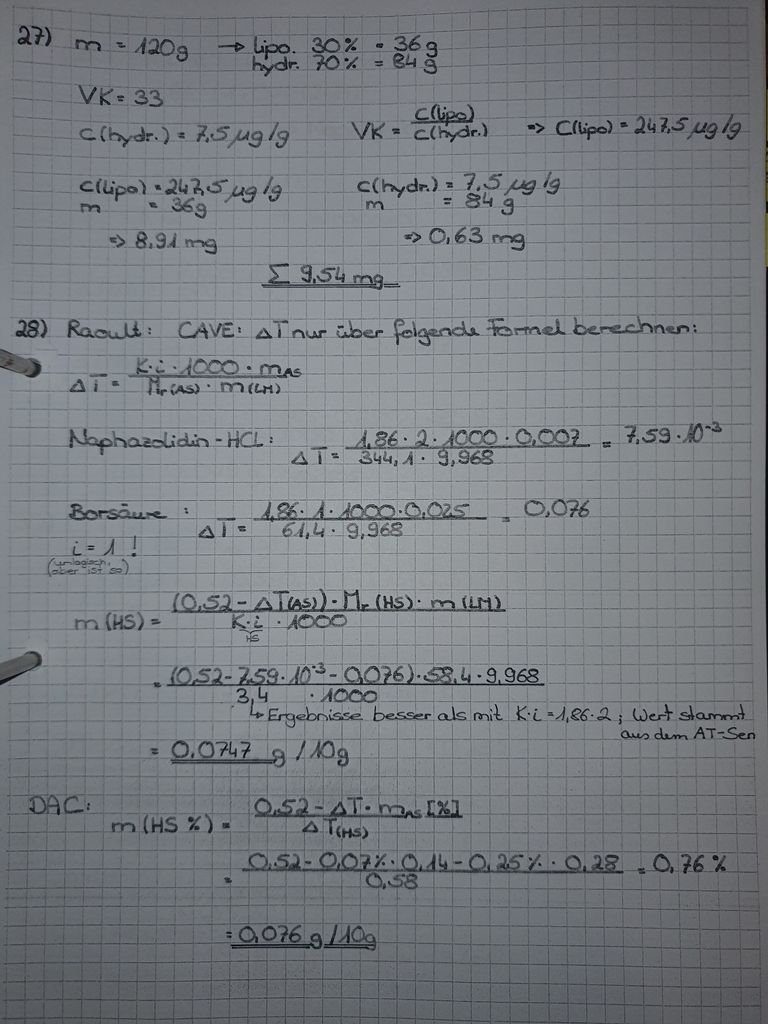 27) m = 120g → lipo. 30% = 36g
hydr. 70% = 84g
VK = 33
c(hydr.) = 7,5 µg/g VK = c(lipo) / c(hydr.) => c(lipo) = 247,5 µg/g
c(lipo) = 247,5 µg/g c(hydr.) = 7,5 µg/g
m = 36g m = 84 g
=> 8,91 mg => 0,63 mg
Σ 9,54 mg
28) Raoult: CAVE: ΔT nur über folgende Formel berechnen:
ΔT = K·i·1000·mAS / Mr(AS)·m(LM)
Naphazolidin-HCL: ΔT = 1,86·2·1000·0,007 / 344,1·9,968 = 7,59·10⁻³
Borsäure : ΔT = 1,86·1·1000·0,025 / 61,4·9,968 = 0,076
i = 1 !
(unlogisch,
aber ist so)
m(HS) = (0,52 - ΔT(AS))·Mr(HS)·m(LM) / K·i·1000
HS
= (0,52 - 7,59·10⁻³ - 0,076)·58,4·9,968 / 3,4 ·1000
↳ Ergebnisse besser als mit K·i = 1,86·2 ; Wert stammt
aus dem AT-Sen
= 0,0747 g /10g
DAC: m(HS %) = 0,52 - ΔT·mAS [%] / ΔT(HS)
= 0,52 - 0,07%·0,14 - 0,25%·0,28 / 0,58 = 0,76 %
= 0,076 g /10g